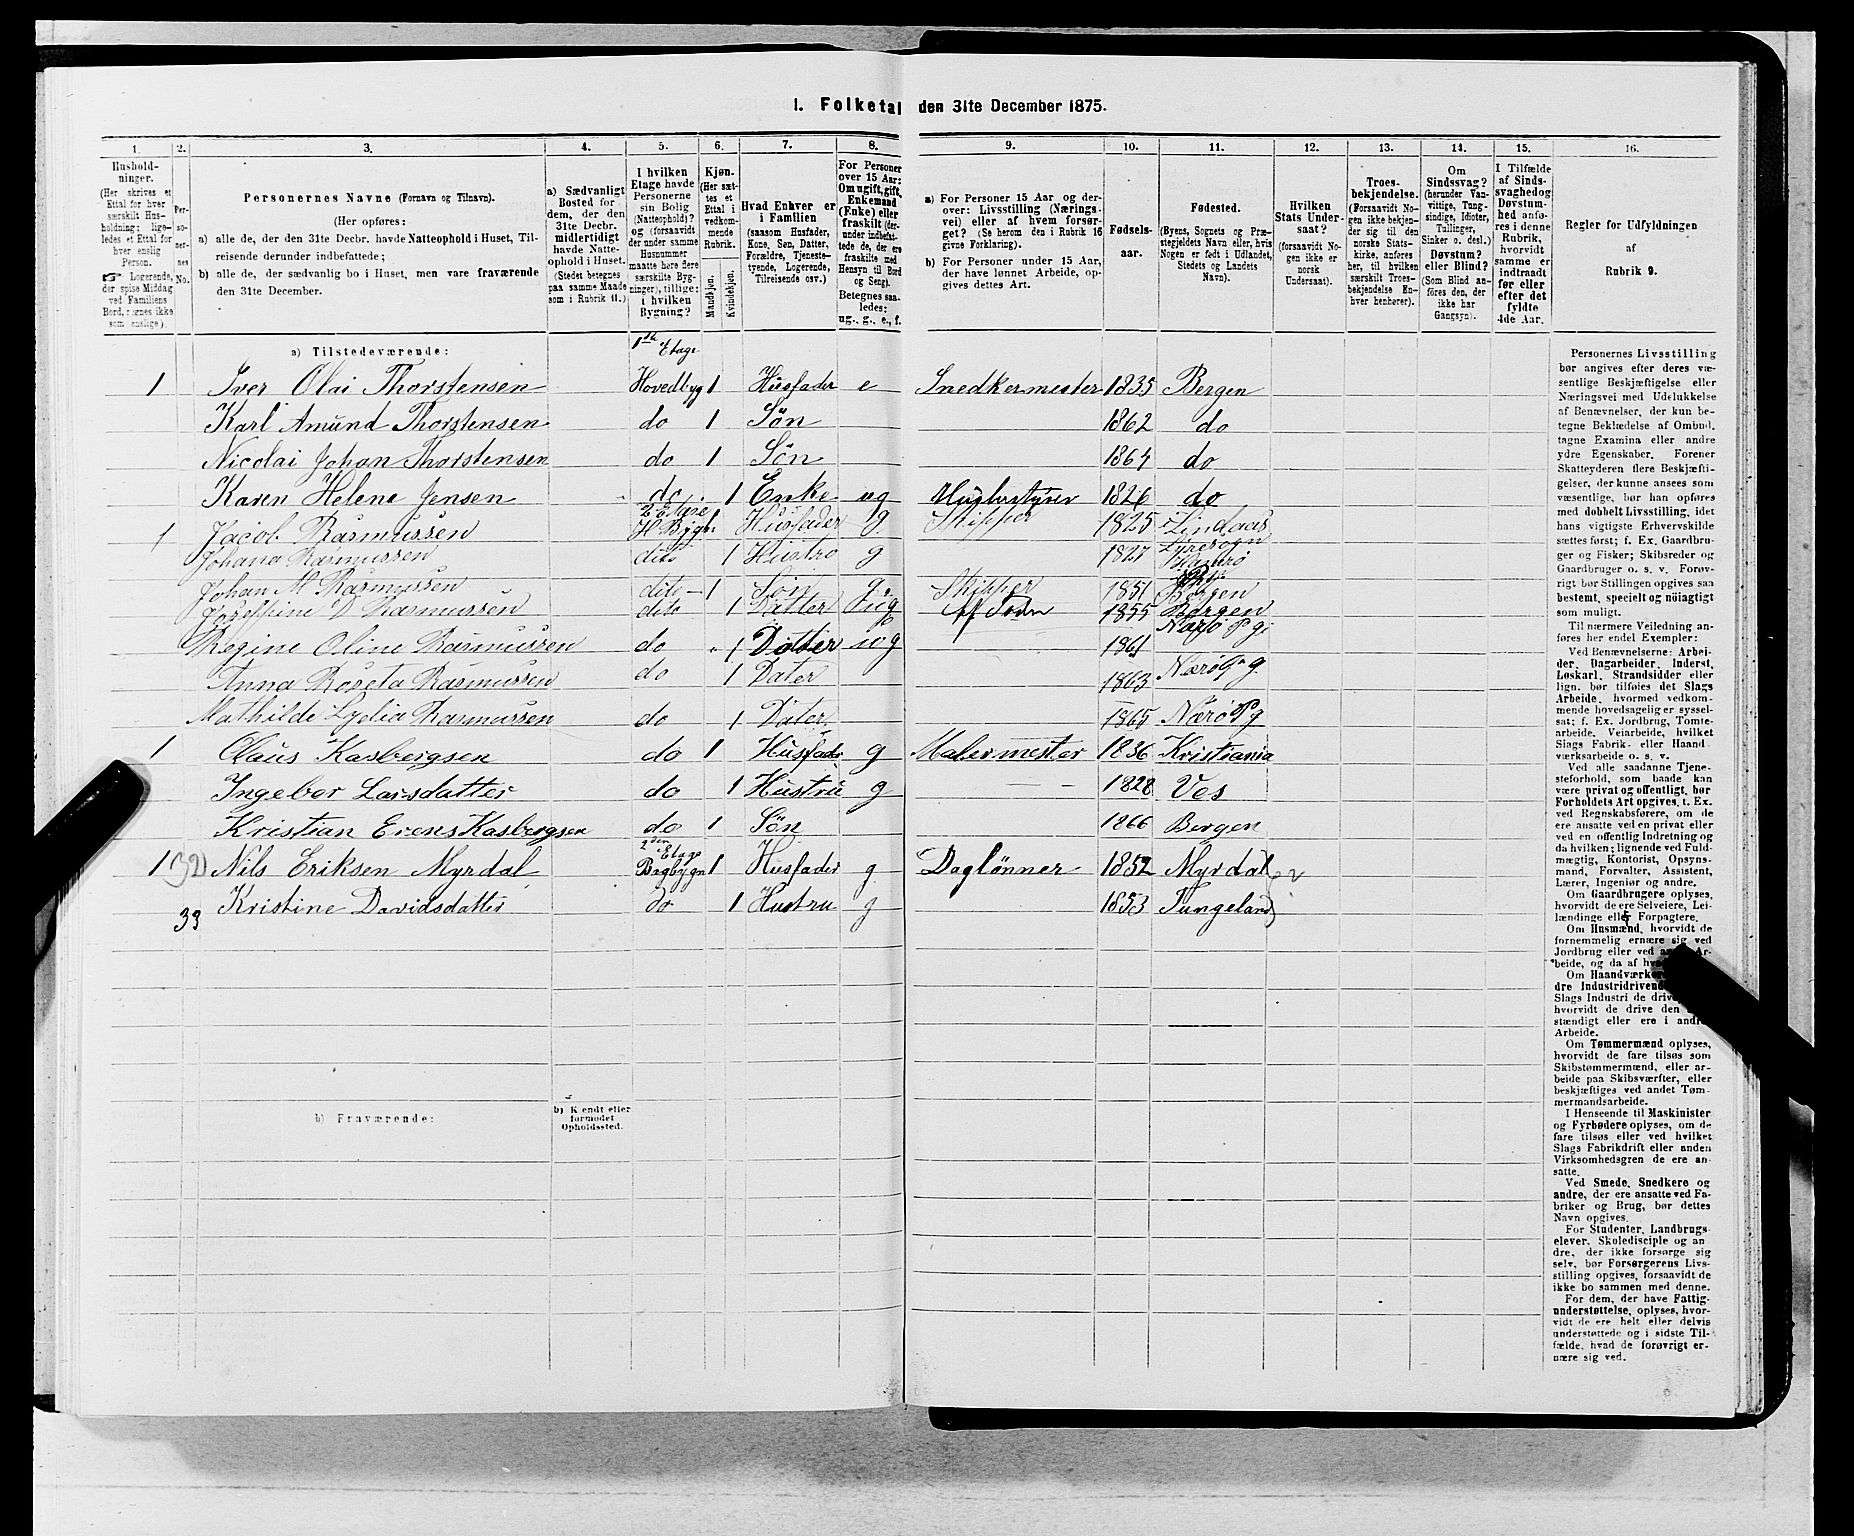 1. Folketæl den 31te December 1875.
1. 2. 3. 4. 5. 6. 7. 8. 9. 10. 11. 12. 13. 14. 15. 16.
Hushold-
ninger.
(Her skrives et
Ettal for hver
særskilt Hus-
holdning; lige-
ledes et Ettal for
hver enslig
Person.
☞ Logerende,
der spise Middag
ved Familiens
Bord, regnes ikke
som enslige).
Per-
so-
ner-
nes
No.
Personernes Navne (Fornavn og Tilnavn).
(Her opføres:
a) alle de, der den 31te Decbr. havde Natteophold i Huset, Til-
reisende derunder indbefattede;
b) alle de, der sædvanlig bo i Huset, men vare fraværende
den 31te December.
a) Sædvanligt
Bosted for
dem, der den
31te Decbr.
midlertidigt
havde Natte-
ophold i Huset.
(Stedet betegnes
paa samme Maade
som i Rubrik 11.)
I hvilken
Etage havde
Personerne
sin Bolig
(Natteophold)?
og (forsaavidt
der under samme
Husnummer
maatte høre flere
særskilte Byg-
ninger), tillige:
i hvilken
Bygning?
Kjøn.
(Her sæt-
tes et
Ettal i
vedkom-
mende
Rubrik.
Mandkjøn.
Kvindekjøn.
Hvad Enhver er
i Familien
(saasom Husfader,
Kone, Søn, Datter,
Forældre, Tjeneste-
tyende, Logerende,
Tilreisende osv.)
For Personer
over 15 Aar:
Om ugift, gift,
Enkemand
(Enke) eller
fraskilt (der-
under indbefat-
tede de, der ere
fraskilte med
Hensyn til Bord
og Seng).
Betegnes saa-
ledes:
ug., g., e., f.
a) For Personer 15 Aar og der-
over: Livsstilling (Nærings-
vei) eller af hvem forsør-
get? (Se herom den i Rubrik 16
givne Forklaring).
b) For Personer under 15 Aar,
der have lønnet Arbeide, op-
gives dettes Art.
Fødsels-
aar.
Fødested.
(Byens, Sognets og Præ-
stegjeldets Navn eller, hvis
Nogen er født i Udlandet,
Stedets og Landets
Navn).
Hvilken
Stats Under-
saat?
(forsaavidt No-
gen ikke er
norsk
Undersaat).
Troes-
bekjendelse.
(Forsaavidt No-
gen ikke bekjen-
der sig til den
norske Stats-
kirke, anføres
her, til hvilken
særskilt Troes-
bekjendelse En-
hver henhører).
Om
Sindssvag?
(herunder Van-
vittige, Tung-
sindige, Idioter,
Tullinger,
Sinker o. desl.)
Døvstum?
eller Blind?
(Som Blind an-
føres den, der
ikke har
Gangsyn).
I Tilfælde
af Sinds-
svaghed og
Døvstum-
hed anfø-
res i denne
Rubrik,
hvorvidt
samme er
indtraadt
før eller
efter det
fyldte
4de Aar.
Regler for Udfyldningen
af
Rubrik 9.
a) Tilstedeværende:
1ste Etage
1 Iver Olai Thorstensen Hovedbyg 1 Husfader e Snedkermester 1835 Bergen
Karl Amund Thorstensen do 1 Søn 1862 do
Nicolai Johan Thorstensen do 1 Søn 1864 do
Karen Helena Jensen do 1 Enke ug 1826 do
2 Etage
1 Jacob Rasmussen H Bygn 1 Husfader g Skipper 1825 Lindaas
Johana Rasmussen dito 1 Hustro g 1827
Johan M Rasmussen dito 1 Søn g Skipper 1851 Bergen
Josephine D Rasmussen dito 1 Datter ug 1855 Bergen
Regine Oline Rasmussen do 1 Datter ug 1861 Nærø Pgj
Anna Roseta Rasmussen do 1 Dater 1863 Nærø Pg
Mathilde Lydia Rasmussen do 1 Dater 1865 Nærø Pg
1 Olaus Kasbergsen do 1 Husfader g Malermester 1836 Kristiania
Ingebor Larsdatter do 1 Hustru g 1828 Vos
Kristian Erens Kasbergsen do 1 Søn 1866 Bergen
2den Etage
1 32 Nils Eriksen Myrdal Bagbygn 1 Husfader g Daglønner 1852 Myrdal
33 Kristine Davidsdatter do 1 Hustru g 1853 Tungeland
b) Fraværende:
b) Kendt eller
formodet
Opholdssted.
Personernes Livsstilling
bør angives efter deres væ-
sentlige Beskjæftigelse eller
Næringsvei med Udelukkelse
af Benævnelser, der kun be-
tegne Beklædelse af Ombud,
tagne Examina eller andre
ydre Egenskaber. Forener
Skatteyderen flere Beskjæfti-
gelser, der kunne ansees som
væsentlige, bør han opføres
med dobbelt Livsstilling, idet
hans vigtigste Erhvervskilde
sættes først; f. Ex. Gaardbru-
ger og Fisker; Skibsreder og
Gaardbruger o. s. v. Forøv-
rigt bør Stillingen opgives saa
bestemt, specielt og nöiagtigt
som muligt.
Til nærmere Veiledning an-
føres her endel Exempler:
Ved Benævnelserne: Arbei-
der, Dagarbeider, Inderst,
Løskarl, Strandsidder eller
lign. bør tilføies det Slags
Arbeide, hvormed vedkom-
mende hovedsagelig er syssel-
sat; f. Ex. Jordbrug, Tomte-
arbeide, Veiarbeide, hvilket
Slags Fabrik- eller Haand
værksarbeide o. s. v.
Ved alle saadanne Tjene-
steforhold, som baade kan
være privat og offentligt, bør
Forholdets Art opgives, t. Ex.
ved Regnskabsførere, om de
ere ansatte ved en privat eller
ved en offentlig Indretning og
da hvilken; lignende ved Fuld-
mægtig, Kontorist, Opsyns-
mand, Forvalter, Assistent,
Lærer, Ingeniør og andre.
Om Gaardbrugere oplyses,
hvorvidt de ere Selveiere, Lei-
lændinge eller Forpagtere.
Om Husmænd, hvorvidt de
fornemmelig ernære sig ved
Jordbrug eller ved Ar-
beide, og da af
Om Haandværker
dre Industridrivend
Slags Industri de drive
hvorvidt de drive den
stændigt eller ere i andre
Arbeide.
Om Tømmermænd oplyses,
hvorvidt de fare tilsøs som
Skibstømmermænd, eller ar-
beide paa Skibsværfter, eller
beskjæftiges ved andet Tøm-
mermandsarbeide.
I Henseende til Maskinister
og Fyrbødere oplyses, om de
fare tilsøs eller ved hvilket
Slags Fabrikdrift eller anden
Virksomhedsgren de ere an-
satte.
Ved Smede, Snedkere og
andre, der ere ansatte ved Fa-
briker og Brug, bør dettes
Navn opgives.
For Studenter, Landbrugs-
elever, Skoledisciple og an-
dre, der ikke forsørge sig
selv, bør Forsørgerens Livs-
stilling opgives, forsaavidt de
ikke bo sammen med denne.
For dem, der have Fattig-
understøttelse, oplyses, hvor-
vidt de ere helt eller delvis
understøttede og i sidste Til-
fælde, hvad de forøvrigt er-
nære sig ved.